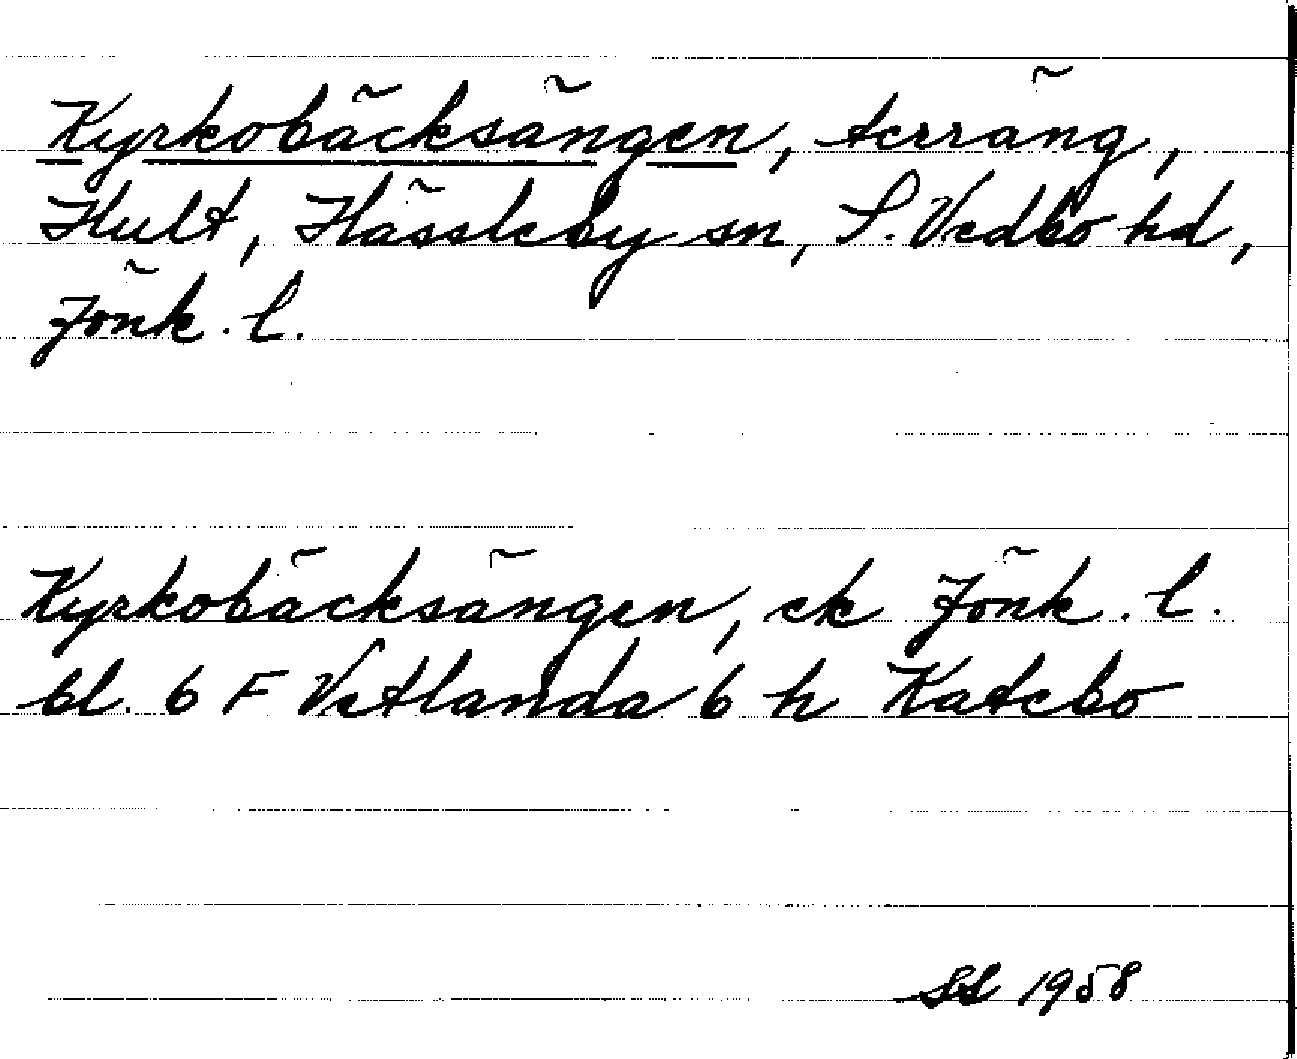 Kyrkobäcksängen, terräng,
Hult, Hässleby sn, S. Vedbo hd,
Jönk. l.
Kyrkobäcksängen, ek Jönk. l.
bl. 6 F Vetlanda 6 h Katebo
SS 1958